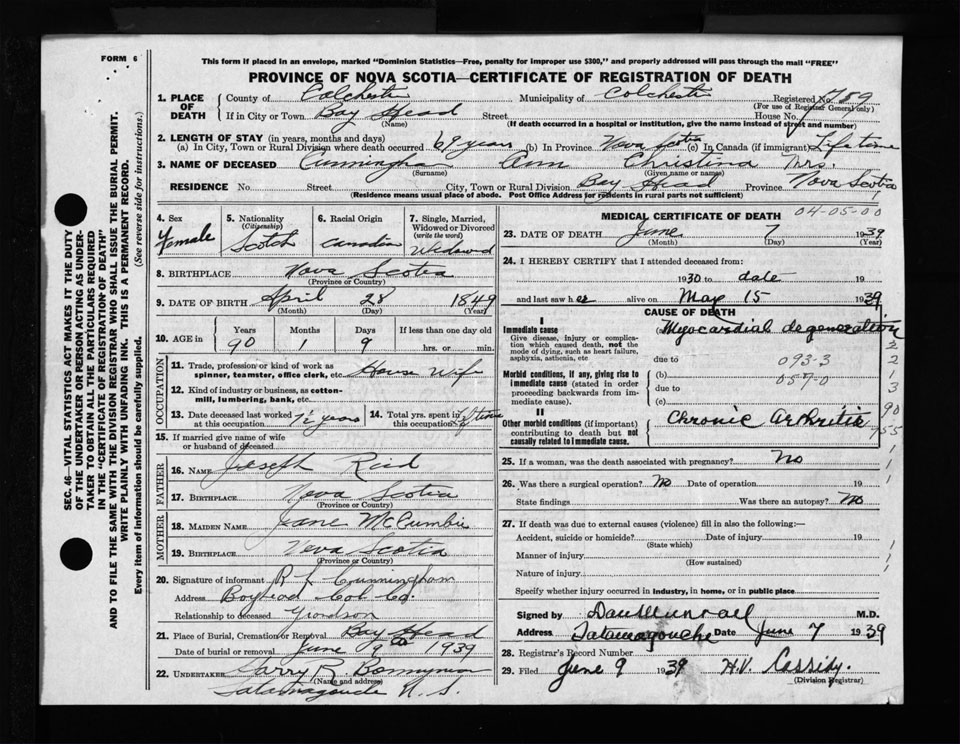 FORM 6
This form if placed in an envelope, marked "Dominion Statistics—Free, penalty for improper use $300," and properly addressed will pass through the mail "FREE"
PROVINCE OF NOVA SCOTIA—CERTIFICATE OF REGISTRATION OF DEATH
1. PLACE OF DEATH
County of Colchester Municipality of Colchester Registered No. 789
(For use of Registrar General only)
If in City or Town Bay Head Street House No.
(Name) (If death occurred in a hospital or institution, give the name instead of street and number)
2. LENGTH OF STAY (in years, months and days)
(a) In City, Town or Rural Division where death occurred 69 years (b) In Province Nova Scotia (c) In Canada (if immigrant) Lifetime
3. NAME OF DECEASED Cunningham Ann Christina Mrs.
(Surname) (Given name or names)
RESIDENCE No. Street City, Town or Rural Division Bay Head Province Nova Scotia
(Residence means usual place of abode. Post Office Address for residents in rural parts not sufficient)
4. Sex Female
5. Nationality (Citizenship) Scotch
6. Racial Origin Canadian
7. Single, Married, Widowed or Divorced (write the word) Widowed
8. BIRTHPLACE Nova Scotia
(Province or Country)
9. DATE OF BIRTH April 28 1849
(Month) (Day) (Year)
10. AGE in Years Months Days If less than one day old
90 1 9 hrs. or min.
OCCUPATION
11. Trade, profession or kind of work as spinner, teamster, office clerk, etc. House Wife
12. Kind of industry or business, as cotton-mill, lumbering, bank, etc.
13. Date deceased last worked at this occupation
14. Total yrs. spent in this occupation
15. If married give name of wife or husband of deceased
FATHER
16. NAME Joseph Reid
17. BIRTHPLACE Nova Scotia
(Province or Country)
MOTHER
18. MAIDEN NAME Jane McCumbie
19. BIRTHPLACE Nova Scotia
(Province or Country)
20. Signature of informant R L Cunningham
Address Bayhead Col. Co.
Relationship to deceased Grandson
21. Place of Burial, Cremation or Removal Bay Head
Date of burial or removal June 9 1939
22. UNDERTAKER
(Name and address)
N. S.
MEDICAL CERTIFICATE OF DEATH
04-05-00
23. DATE OF DEATH June 7 1939
(Month) (Day) (Year)
24. I HEREBY CERTIFY that I attended deceased from:
1930 to date 19
and last saw her alive on May 15 1939
CAUSE OF DEATH
I
Immediate cause
Give disease, injury or complication which caused death, not the mode of dying, such as heart failure, asphyxia, asthenia, etc
(a) Myocardial degeneration
due to 093-3
Morbid conditions, if any, giving rise to immediate cause (stated in order proceeding backwards from immediate cause).
(b) 059-0
due to
(c)
II
Other morbid conditions (if important) contributing to death but not causally related to immediate cause.
Chronic Arthritis
2
2
1
3
90
755
25. If a woman, was the death associated with pregnancy? No
26. Was there a surgical operation? No Date of operation 19
State findings Was there an autopsy? No
27. If death was due to external causes (violence) fill in also the following:—
Accident, suicide or homicide? Date of injury 19
(State which)
Manner of injury
(How sustained)
Nature of injury
Specify whether injury occurred in industry, in home, or in public place
Signed by M.D.
Address Tatamagouche Date June 7 1939
28. Registrar's Record Number
29. Filed June 9 1939 H.V. Cassidy.
(Division Registrar)
SEC. 46—VITAL STATISTICS ACT MAKES IT THE DUTY
OF THE UNDERTAKER OR PERSON ACTING AS UNDER-
TAKER TO OBTAIN ALL THE PARTICULARS REQUIRED
IN THE "CERTIFICATE OF REGISTRATION OF DEATH"
AND TO FILE THE SAME WITH THE DIVISION REGISTRAR WHO SHALL ISSUE THE BURIAL PERMIT.
WRITE PLAINLY WITH UNFADING INK. THIS IS A PERMANENT RECORD.
Every item of information should be carefully supplied. (See reverse side for instructions.)